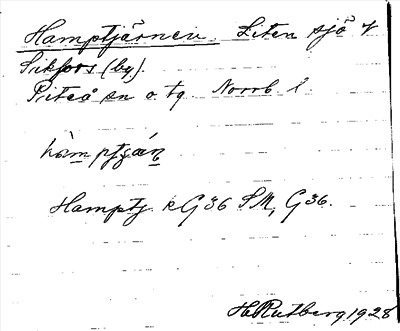 Hamptjärnen. Liten sjö v
Sikfors (by).
Piteå sn o. tg. Norrb. l.
hàmptján
Hamptj. RG36 SM, G36.
H. Rutberg 1928